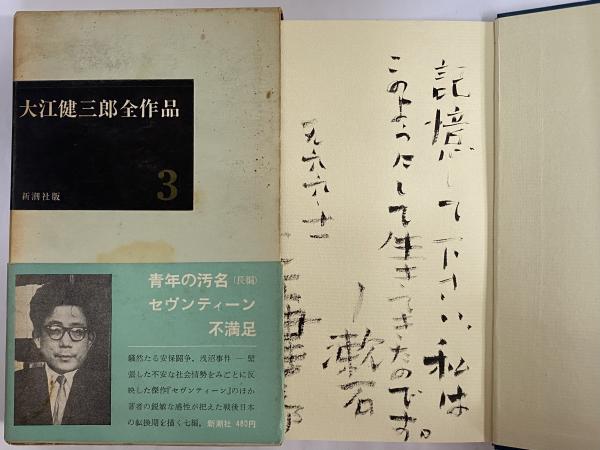 大江健三郎全作品
3
新潮社版
青年の汚名(長編)
セヴンティーン
不満足
騒然たる安保闘争、浅沼事件―緊
張した不安な社会情勢をみごとに反
映した傑作『セヴンティーン』のほか
著者の鋭敏な感性が把えた戦後日本
の転換期を描く七編。 新潮社 480円
記憶して下さい。私は
このようにして生きてきたのです。
漱石
一九六六・十一
大江健三郎